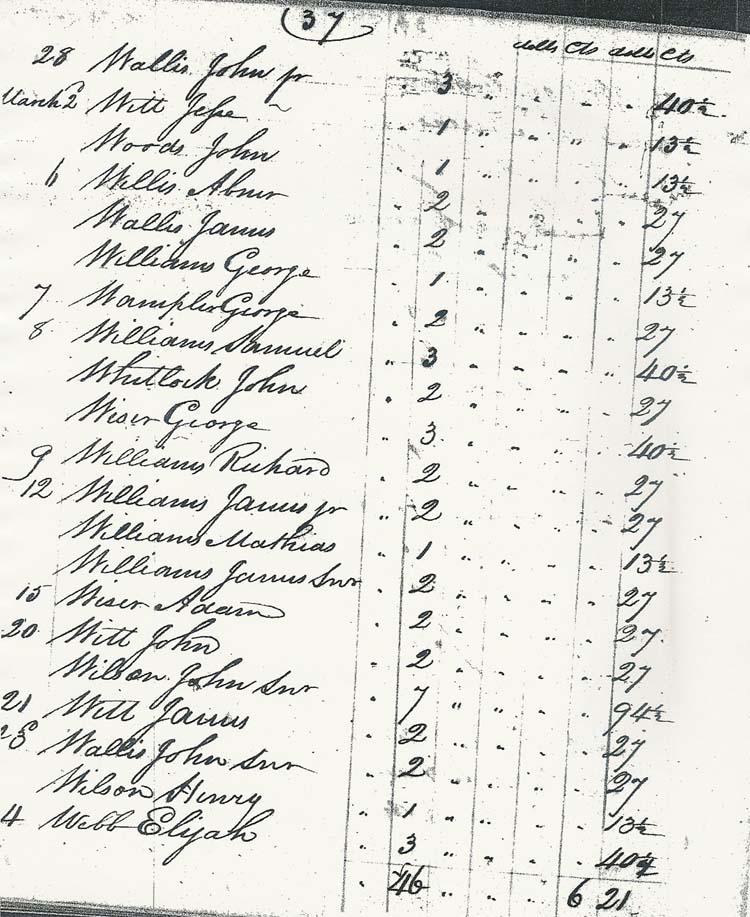 37
dolls Cts dolls Cts
28 Wallis John jr . 3 " " " " 40½
March 2 Witt Jesse ~ . 1 " " " " 13½
Woods John . 1 " " " " 13½
6 Willis Abner . 2 " " " " 27
Wallis James . 2 " " " " 27
Williams George . 1 " " " " 13½
7 Wampler George . 2 " " " " 27
8 Williams Samuel " 3 " " " " 40½
Whitlock John " 2 " " " " 27
Wiser George . 3 " " " " 40½
9 Williams Richard " 2 " " " " 27
12 Williams James jr " 2 " " " " 27
Williams Mathias . 1 " " " " 13½
Williams James Snr " 2 " " " " 27
15 Wiser Adam . 2 " " " " 27
20 Witt John . 2 " " " " 27
Wilson John Snr . 7 " " " " 94½
21 Witt James . 2 " " " " 27
28 Wallis John Snr . 2 " " " " 27
Wilson Henry . 1 " " " " 13½
4 Webb Elijah . 3 " " " " 40½
. 46 " " " 6 21